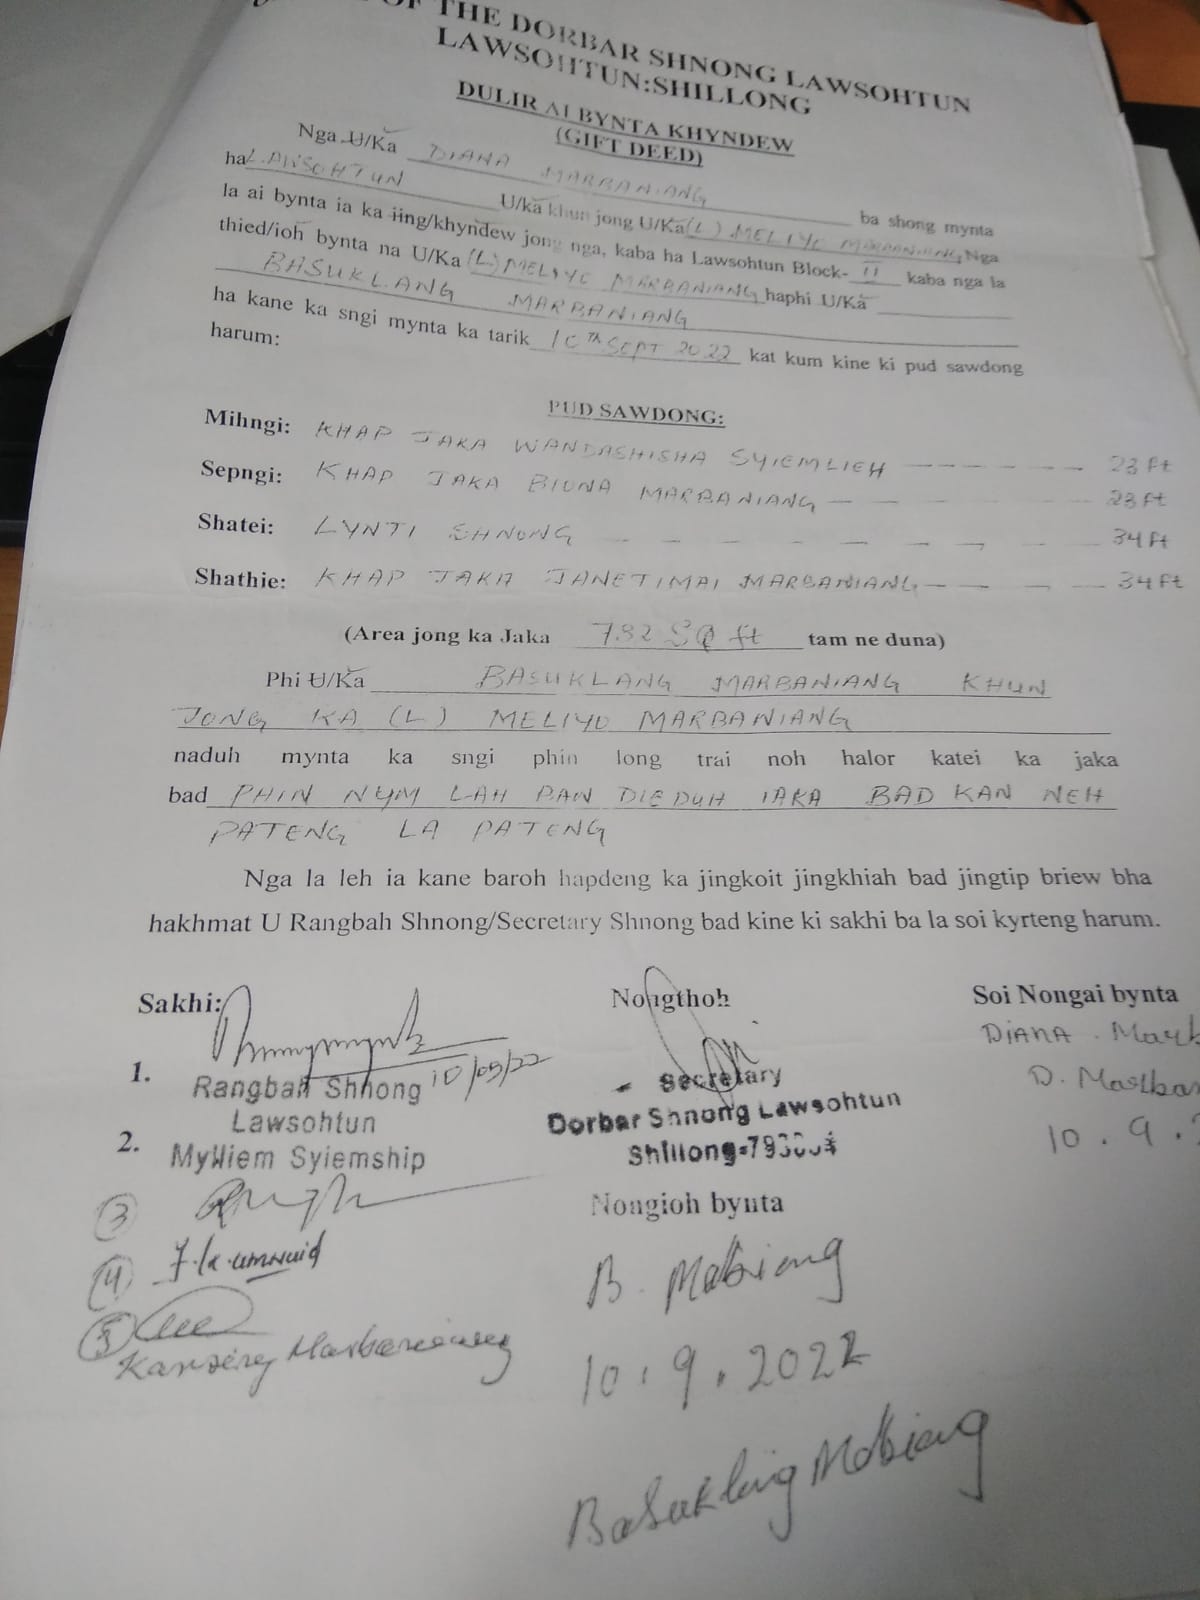 OF THE DORBAR SHNONG LAWSOHTUN
LAWSOHTUN:SHILLONG
DULIR AI BYNTA KHYNDEW
(GIFT DEED)
Nga U/Ka DIANA MARBANIANG ba shong mynta
ha LAWSOHTUN U/ka khun jong U/Ka (L) MELIYO MARBANIANG Nga
la ai bynta ia ka iing/khyndew jong nga, kaba ha Lawsohtun Block- II kaba nga la
thied/ioh bynta na U/Ka (L) MELIYO MARBANIANG haphi U/Ka
BASUKLANG MARBANIANG
ha kane ka sngi mynta ka tarik 10TH SEPT 2022 kat kum kine ki pud sawdong
harum:
PUD SAWDONG:
Mihngi: KHAP JAKA WANDASHISHA SYIEMLIEH - - - - - 23 Ft
Sepngi: KHAP JAKA BIUNA MARBANIANG - - - - - 23 Ft
Shatei: LYNTI SHNONG - - - - - - - - 34 Ft
Shathie: KHAP JAKA JANETIMAI MARBANIANG - - - - 34 Ft
(Area jong ka Jaka 782 SQ ft tam ne duna)
Phi U/Ka BASUKLANG MARBANIANG KHUN
JONG KA (L) MELIYO MARBANIANG
naduh mynta ka sngi phin long trai noh halor katei ka jaka
bad PHIN NYM LAH BAN DIE DUH IAKA BAD KAN NEH
PATENG LA PATENG
Nga la leh ia kane baroh hapdeng ka jingkoit jingkhiah bad jingtip briew bha
hakhmat U Rangbah Shnong/Secretary Shnong bad kine ki sakhi ba la soi kyrteng harum.
Sakhi: Nongthoh Soi Nongai bynta
DIANA
D.
10.9.
1. 10/09/22
Rangbah Shnong
Lawsohtun
2. Mylliem Syiemship
Secretary
Dorbar Shnong Lawsohtun
Shillong-
(3)
(4)
(5)
Marbaniang
Nongioh bynta
B. Mabiang
10.9.2022
Basuklang Mabiang